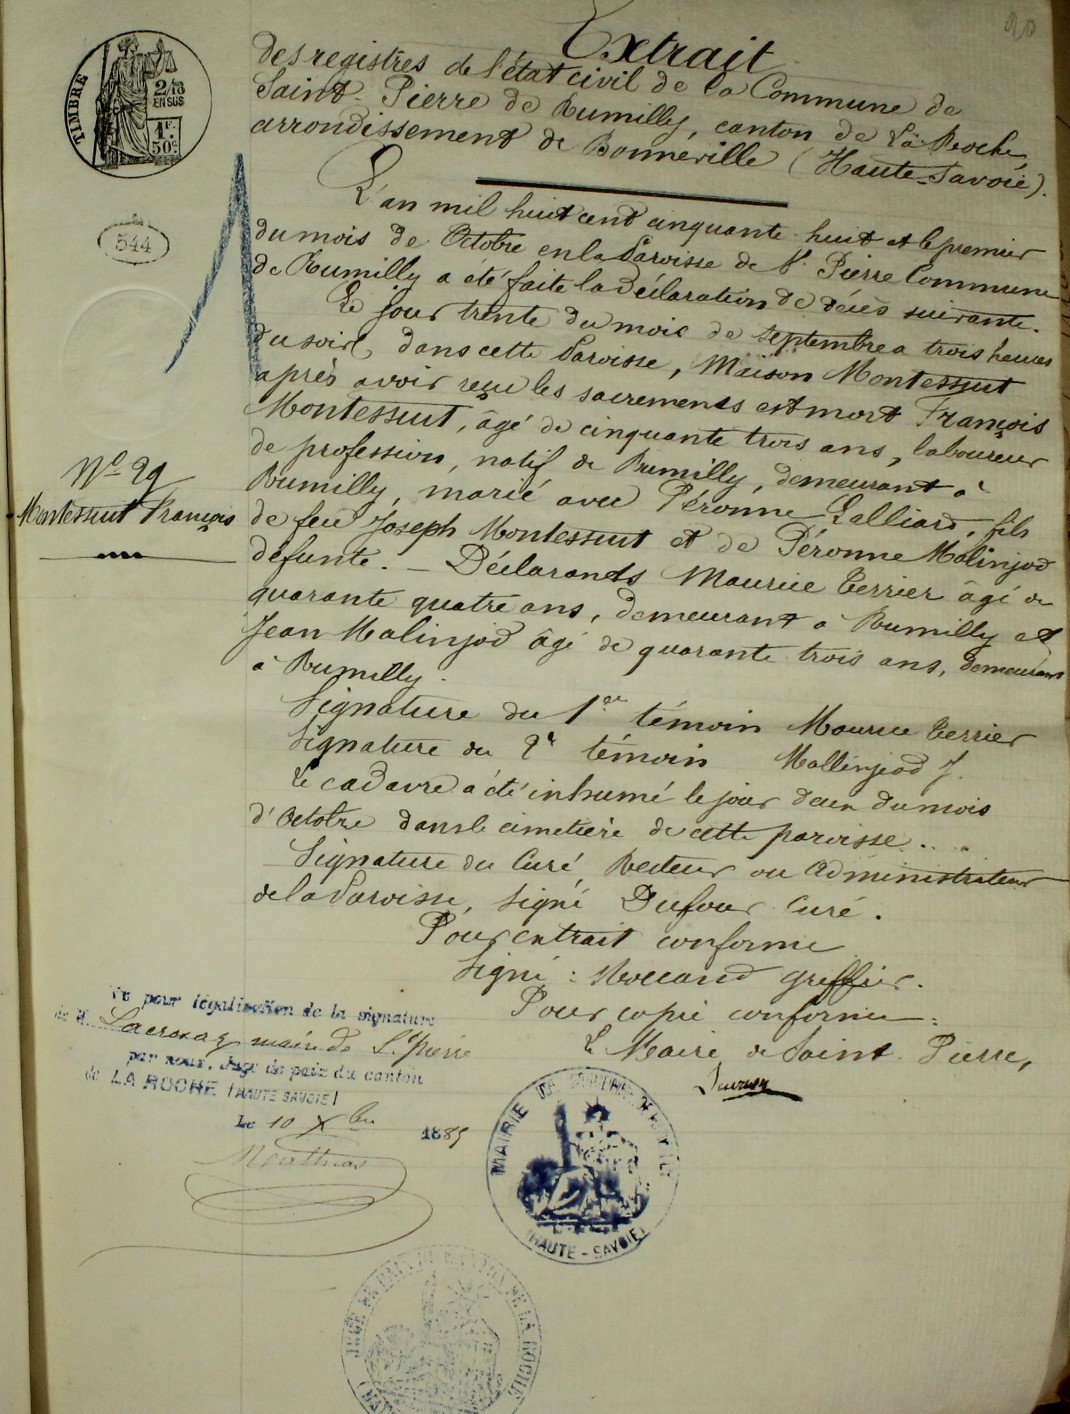 Extrait
des registres de l'état civil de la Commune de
Saint-Pierre de Rumilly, canton de La Roche,
arrondissement de Bonneville (Haute-Savoie).
TIMBRE
2/10
EN SUS
1F.
50c.
544
L'an mil huit cent cinquante huit et le premier
du mois de Octobre en la Paroisse de St. Pierre Commune
de Rumilly a été faite la déclaration de décès suivante.
Le jour trente du mois de Septembre a trois heures
du soir, dans cette Paroisse, Maison Montessuit
après avoir reçu les sacrements est mort François
Montessuit, âgé de cinquante trois ans, laboureur
de profession, natif de Rumilly, demeurant à
Rumilly, marié avec Péronne Lalliard, fils
de feu Joseph Montessuit et de Péronne Malinjod
défunte. - Déclarants Maurice Terrier âgé de
quarante quatre ans, demeurant à Rumilly et
Jean Malinjod âgé de quarante trois ans, demeurant
à Rumilly.
No 29
Montessuit François
Signature du 1er témoin Maurice Terrier
Signature du 2e témoin Mallinjod J.
Le cadavre a été inhumé le jour deux du mois
d'Octobre dans le cimetière de cette paroisse.
Signature du Curé, Recteur ou Administrateur
de la Paroisse, signé Dufour Curé.
Pour extrait conforme
Signé : greffier.
Pour copie conforme :
Le Maire de Saint-Pierre,
Vu pour légalisation de la signature
de M. maire de St Pierre
par nous, Juge de paix du canton
de LA ROCHE (HAUTE SAVOIE)
Le 10 Xbre 1885
MAIRIE DE RUMILLY
(HAUTE-SAVOIE)
JUGE DE PAIX DU CANTON DE LA ROCHE